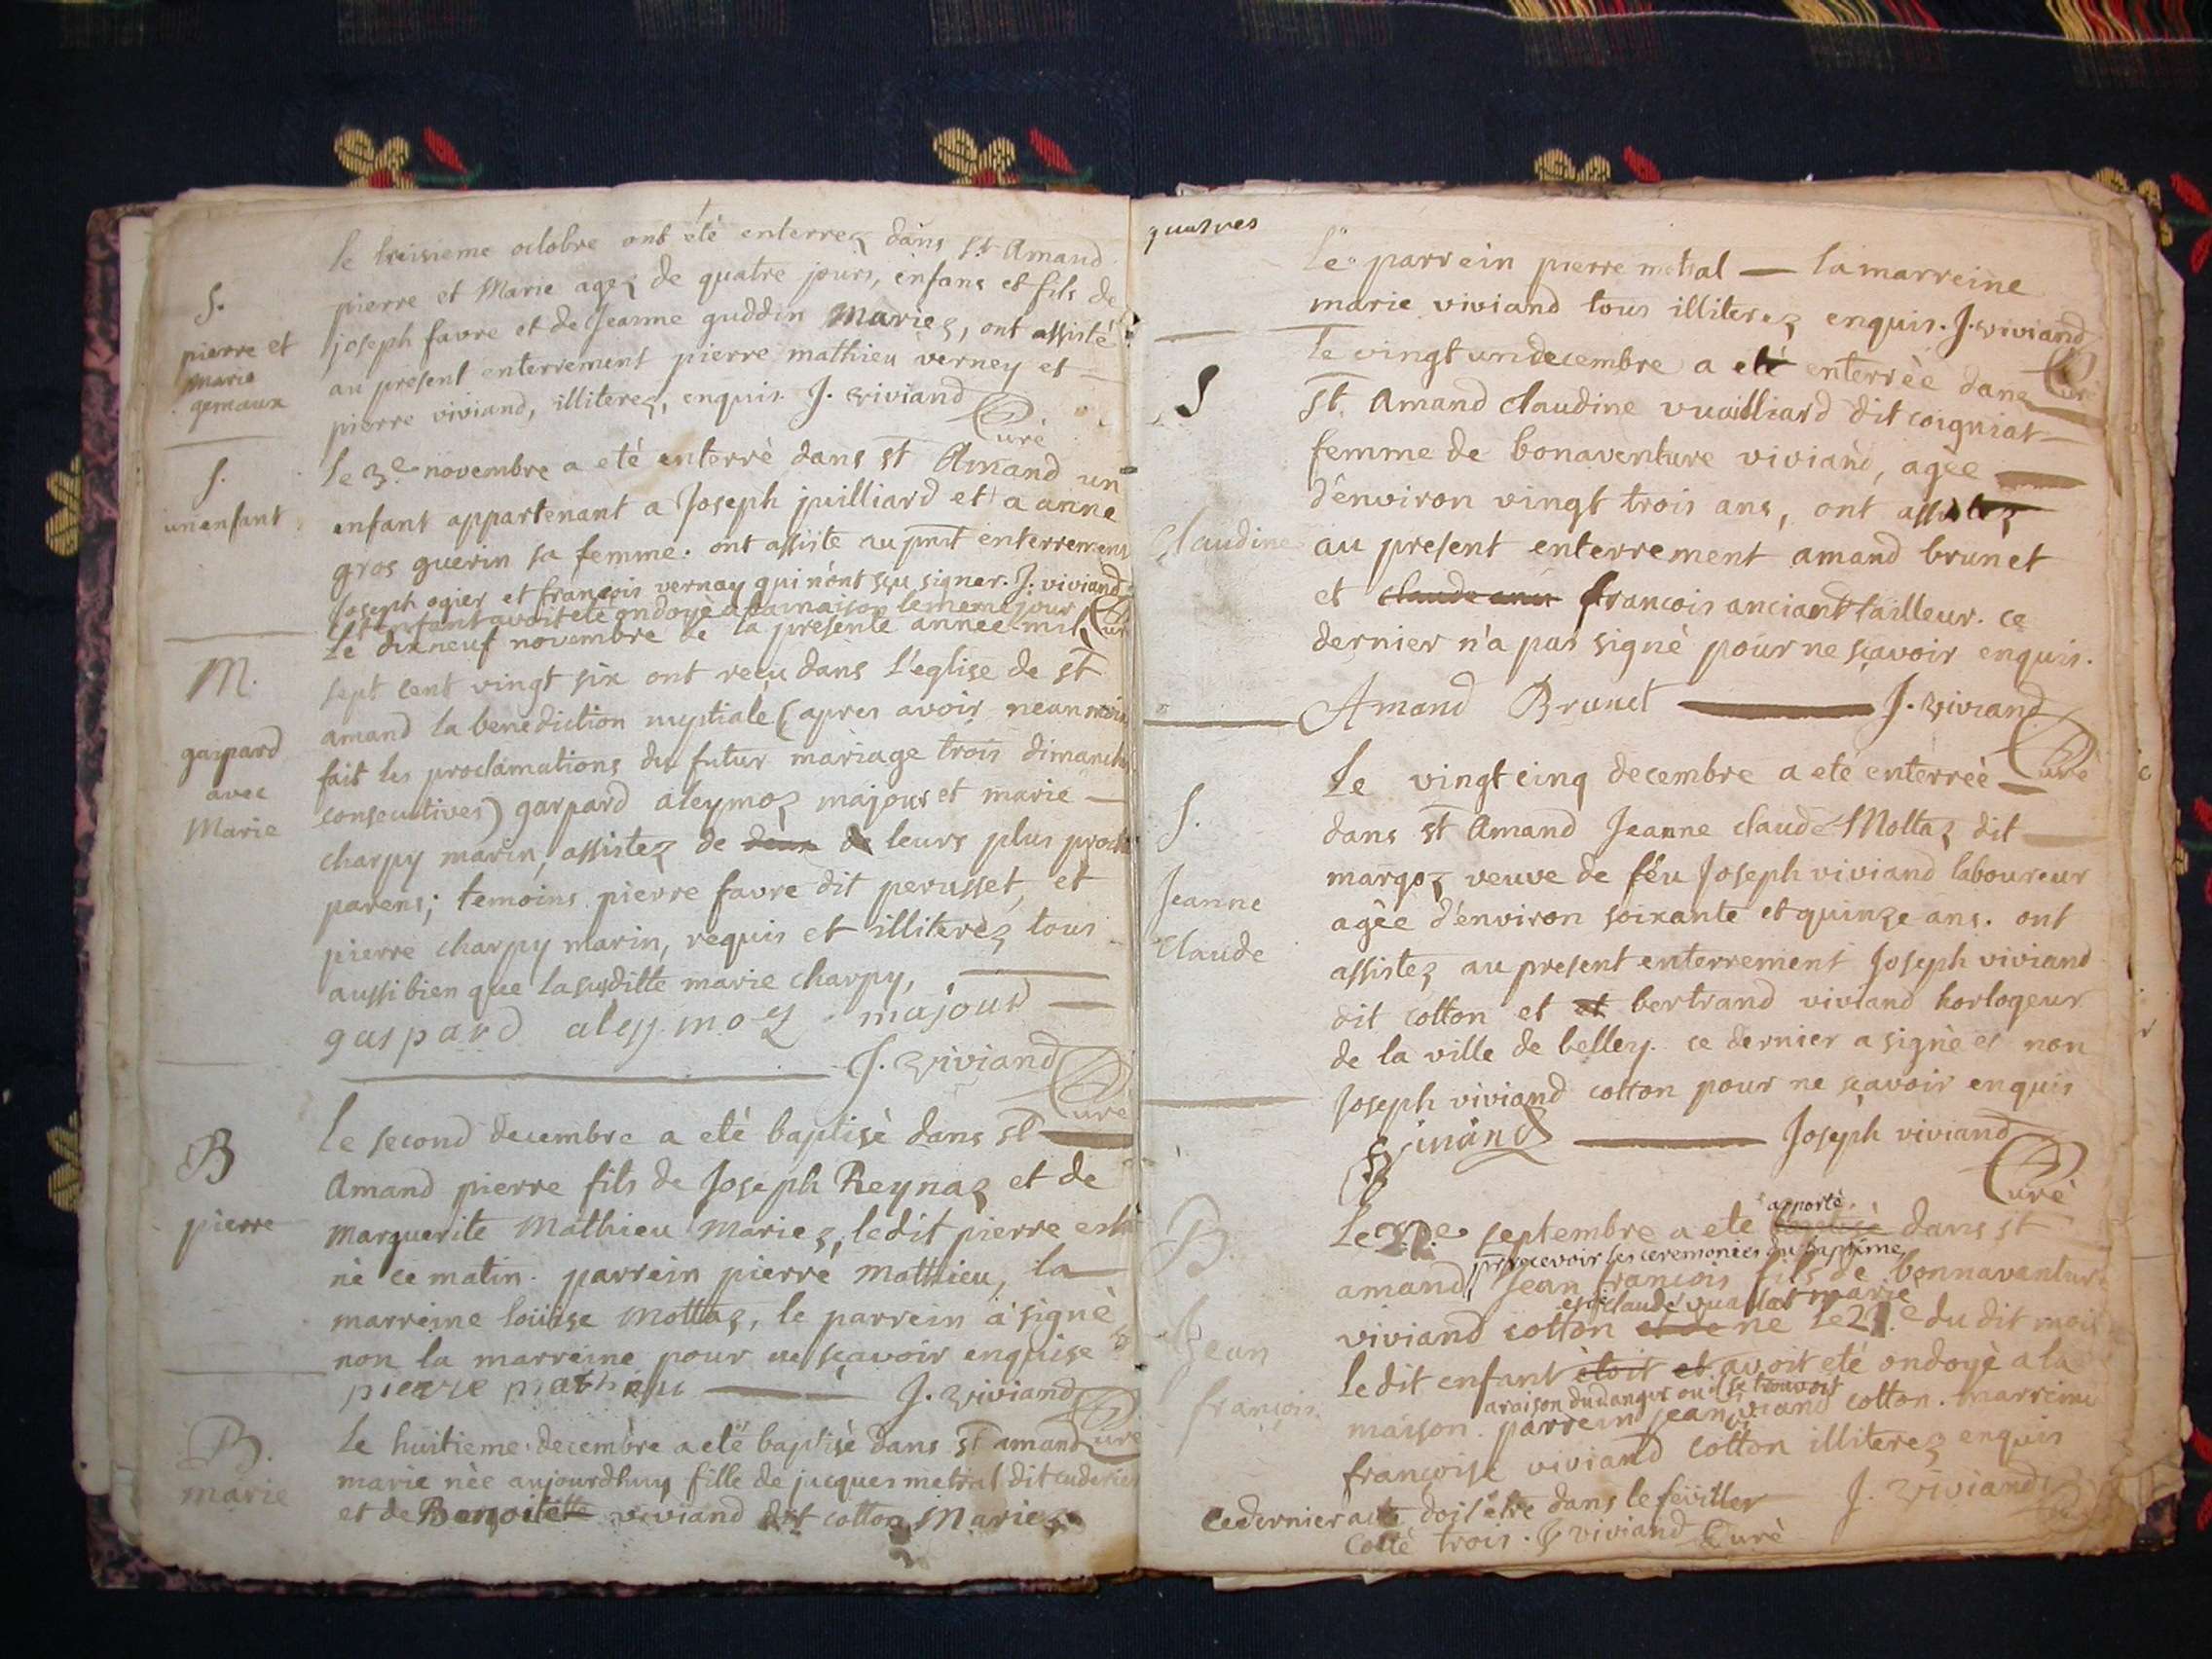 le troisieme octobre ont été enterrez dans St Amand
S.
pierre et Marie agez de quatre jours, enfans et fils de
pierre et
marie
gemaux
joseph favre et de Jeanne guddin Mariez, ont assisté
au present enterrement pierre mathieu verney et
pierre viviand, illiterez, enquis. J. viviand
Curé
S.
un enfant
le 3.e novembre a eté enterré dans st Amand un
enfant appartenant a Joseph juilliard et a anne
gros guerin sa femme. ont assiste au pnt enterrement
Joseph ogier et françois vernay qui n'ont sçu signer. J. viviand
Cet enfant avoit eté ondoyé a la maison le meme jour
Curé
M.
gaspard
avec
Marie
Le dixneuf novembre de la presente année mil
sept cent vingt six ont reçu dans l'eglise de st
amand la benediction nuptiale (apres avoir neanmoins
fait les proclamations du futur mariage trois dimanches
consecutives) gaspard aleymoz majour et marie
charpy marin, assistez de deux de leurs plus proches
parens; temoins pierre favre dit perusset, et
pierre charpy marin, requis et illiterez tous
aussi bien que la susditte marie charpy,
gaspard aleymoz majour
J. viviand
Curé
B
pierre
Le second decembre a eté baptisé dans st
Amand pierre fils de Joseph Reynaz et de
Marguerite Mathieu Mariez, ledit pierre est
né ce matin. parrein pierre Mathieu, la
marreine loüise Mottaz, le parrein a signé
non la marreine pour ne sçavoir enquise
pierre mathieu J. viviand
Curé
B.
marie
Le huitieme decembre a eté baptisé dans st amand
marie née aujourdhuy fille de jacques metral dit
et de Benoitette viviand dit cotton Mariez
quatres
Le parrein pierre metral — la marreine
marie viviand tous illiterez enquis. J. viviand
Curé
S
Claudine
Le vingt un decembre a eté enterrée dans
St. Amand Claudine vuailliard dit coigniat
femme de bonaventure viviand, agée
d'environ vingt trois ans, ont assistez
au present enterrement amand brunet
et françois anciant tailleur. ce
dernier n'a pas signé pour ne sçavoir enquis.
Amand Brunet J. viviand
Curé
S.
Jeanne
Claude
Le vingt cinq decembre a eté enterreé
dans st Amand Jeanne claude Mottaz dit
margoz veuve de féu Joseph viviand laboureur
agée d'environ soixante et quinze ans. ont
assistez au present enterrement Joseph viviand
dit cotton et et bertrand viviand horlogeur
de la ville de belley. ce dernier a signé et non
Joseph viviand cotton pour ne sçavoir enquis
Joseph viviand
Curé
B.
Jean
françois.
apporté
Le septembre a eté baptisé dans st
pr recevoir les ceremonies du baptême
amand Jean francois fils de bonnaventure
viviand cotton et de né le du dit mois
Le dit enfant étoit et avoit eté ondoyé a la
a raison du danger ou il se trouvoit
maison. parrein jean viviand cotton. marreine
françoise viviand cotton illiterez enquis
J. viviand
Curé
Ce dernier acte doit etre dans le feüillet
cotté trois. J viviand Curé